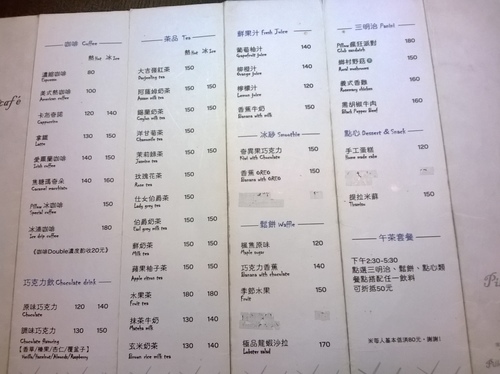 café
咖啡 Coffee
熱Hot 冰Ice
濃縮咖啡 80
Espresso
美式熱咖啡 100
American coffee
卡布奇諾 120 140
Cappuccino
拿鐵 130 150
Latte
愛爾蘭咖啡 130 150
Irish coffee
焦糖瑪奇朵 140 160
Caramel macchiato
Pillow 冰咖啡 150
Special coffee
冰滴咖啡 180
Ice drip coffee
(咖啡Double濃度酌收20元)
巧克力飲 Chocolate drink
原味巧克力 120 140
Chocolate
調味巧克力 130 150
Chocolate flavoring
【香草/榛果/杏仁/覆盆子】
Vanilla/Hazelnut/Almonds/Raspberry
茶品 Tea
熱Hot 冰Ice
大吉嶺紅茶 150
Darjeeling tea
阿薩姆奶茶 150 150
Assam milk tea
錫蘭奶茶 150 150
Ceylon milk tea
洋甘菊茶 150
Chamomile tea
茉莉綠茶 150 150
Jasmine tea
玫瑰花茶 150
Rose tea
仕女伯爵茶 150
Lady grey tea
伯爵奶茶 150 150
Earl grey milk tea
鮮奶茶 150 150
Milk tea
蘋果柚子茶 150 150
Apple citron tea
水果茶 180 180
Fruit tea
抹茶牛奶 130 140
Matcha milk
玄米奶茶 130 140
Brown rice milk tea
鮮果汁 Fresh Juice
葡萄柚汁 140
Grapefruit juice
柳橙汁 140
Orange juice
檸檬汁 120
Lemon juice
香蕉牛奶 150
Banana with milk
冰砂 Smoothie
奇異果巧克力 150
Kiwi with Chocolate
香蕉 OREO 150
Banana with OREO
鬆餅 Waffle
楓馬原味 120
Maple sugar
巧克力香蕉 140
Banana with chocolate
季節水果 150
Fruit
極品龍蝦沙拉 170
Lobster salad
三明治 Panini
Pillow 瘋狂派對 180
Club sandwich
鄉村野菇 150
Rural mushrooms
義式香雞 160
Rosemary chicken
黑胡椒牛肉 160
Black Pepper Beef
點心 Dessert & Snack
手工蛋糕 120
Home made cake
提拉米蘇 150
Tiramisu
午茶套餐
下午2:30-5:30
點選三明治、鬆餅、點心類
餐點搭配任一飲料
可折抵50元
※每人基本低消80元，謝謝!